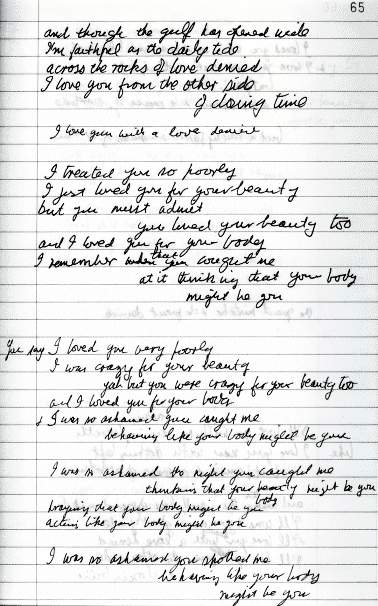 65
and though the gulf has opened wide
I'm faithful as the daily tide
across the rocks of love denied
I love you from the other side
of closing time
I love you with a love denied
I treated you so poorly
I just loved you for your beauty
but you must admit
you loved your beauty too
and I loved you for your body
I remember when that you caught me
at it thinking that your body
might be you
You say I loved you very poorly
I was crazy for your beauty
yah but you were crazy for your beauty too
and I loved you for your body
& I was so ashamed you caught me
behaving like your body might be you
I was so ashamed the night you caught me
thinking that your beauty might be you
body
praying that your body might be you
acting like your body might be you
I was so ashamed you spotted me
behaving like your body
might be you